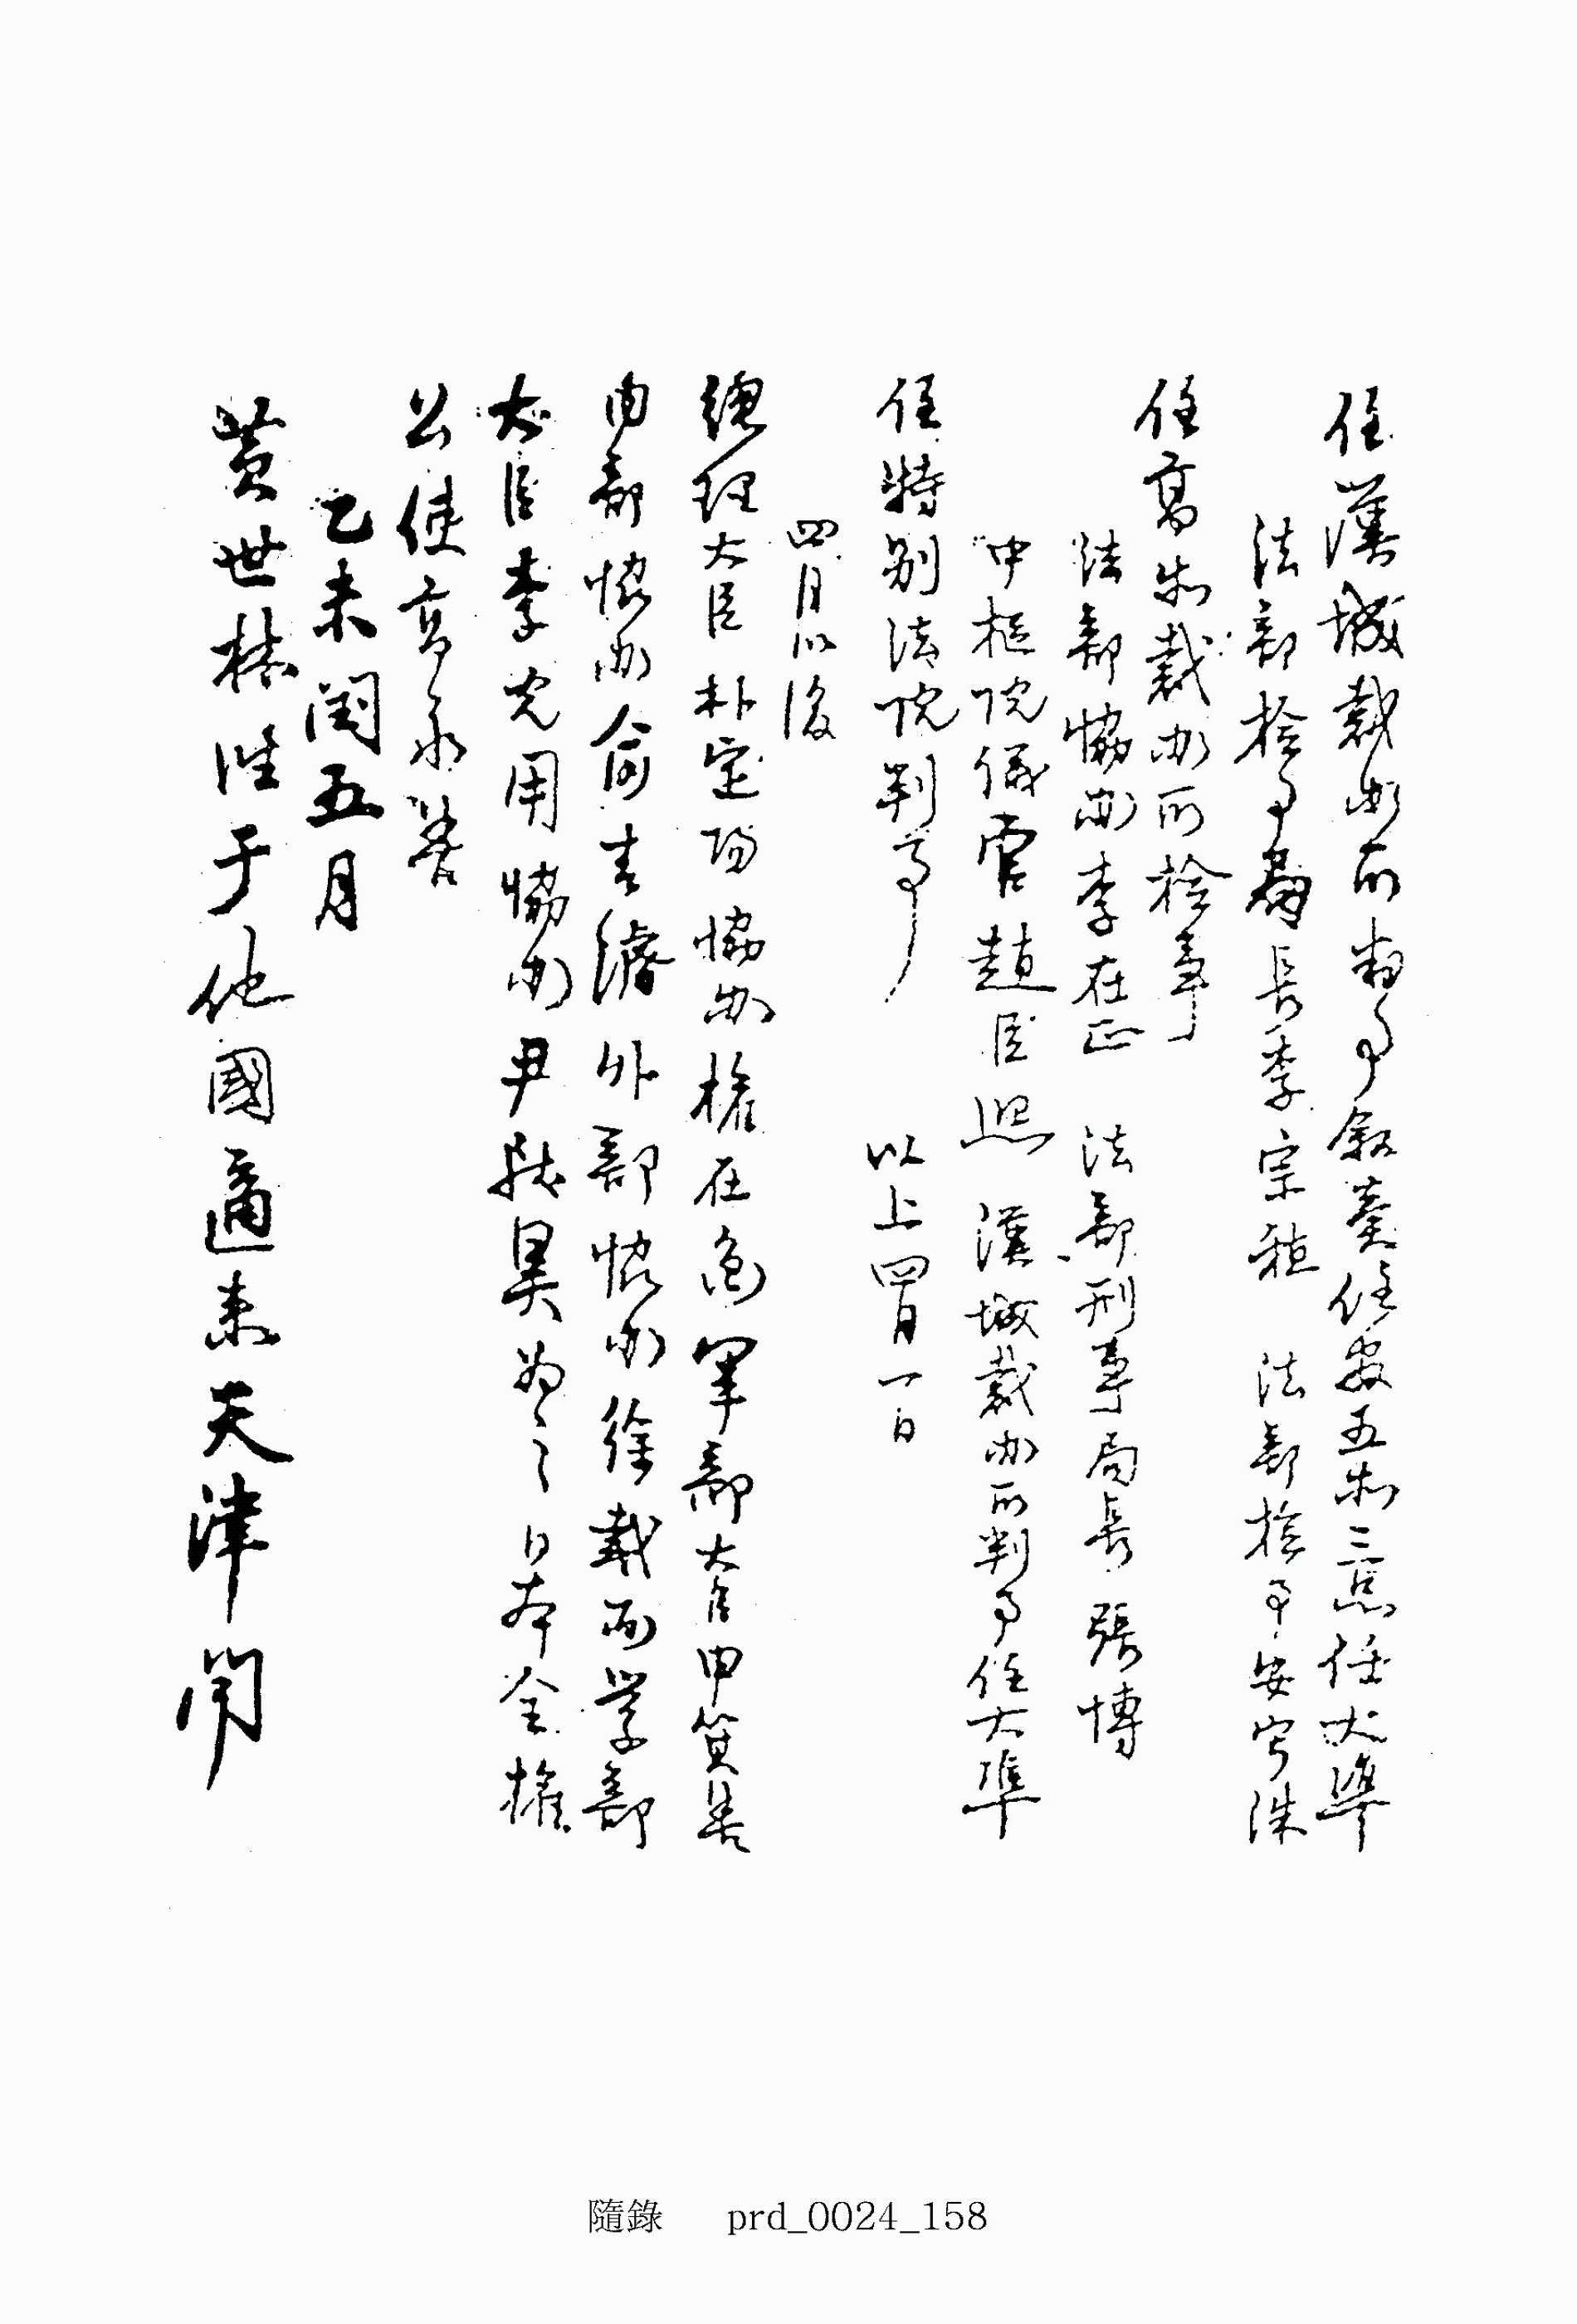 任漢城裁判所判事敍奏任等五級三宗任大準
法部檢事局長李宗稙 法部檢事安寧洙
任高等裁判所檢事
法部協辦李在正 法部刑事局長張博
中樞院議官趙臣熙 漢城裁判所判事任大準
任特別法院判事 以上四月一日
四月以後
總理大臣朴定陽協辦權在衡軍部大臣申箕善
內部協辦兪吉濬外部協辦徐載弼學部
大臣李完用協辦尹致昊為之日本全權
公使高永喜
乙未閏五月
黃世 徃于他國適來天津